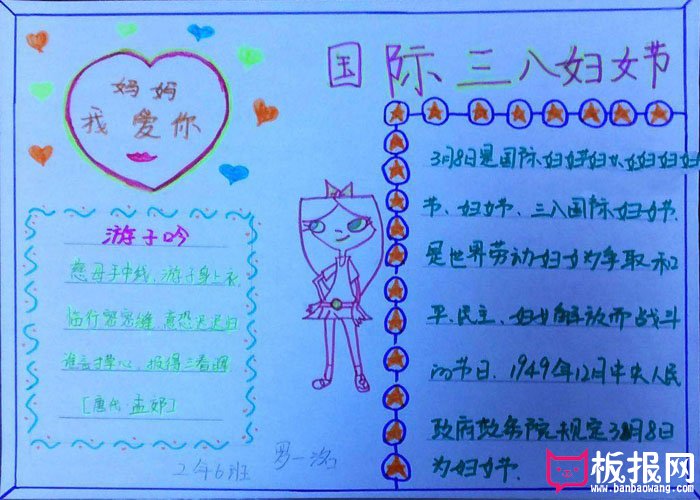 国际三八妇女节
妈妈
我爱你
游子吟
慈母手中线,游子身上衣,
临行密密缝,意恐迟迟归
谁言寸草心,报得三春晖
[唐代 孟郊]
3月8日是国际妇
节、妇女节、三八国际妇女节.
是世界劳动妇女为争取和
平、民主、妇女解放而战斗
的节日.1949年12月中央人民
政府政务院规定3月8日
为妇女节.
2年6班
板报网
www.banbaowang.com